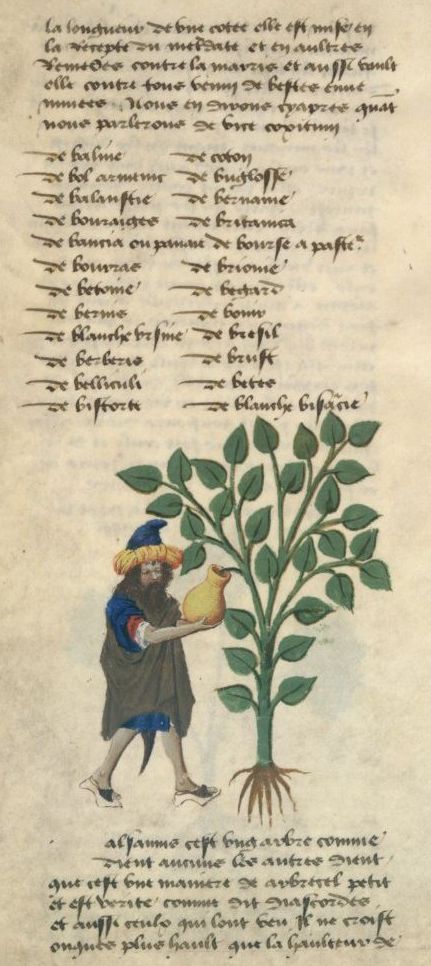 la longueur de une cotee elle est mise en
la recepte du metridate et en aultres
Remedes contre la marris et aussi vault
elle contre tous venin de bestes enve
nimees Nous en dirons cyapres quāt
nous parlerons de
de balme de coton
de bol armenic de buglosse
de balaustie de
de bouraiges de britanica
de bancia ou panaie de bourse a paste.
de bourras de brionie
de betoine de begard
de bernis de
de blanche ursine de bresil
de berberis de brust
de belliculi de betes
de bistorte de blanche
alsamus cest ung arbre comme
dient aucuns les autres dient
que cest une maniere de arbrecel petit
et est verite comme dit diascordes
et aussi ceulx qui lont veu Il ne croist
onques plus hault que la haulteur de